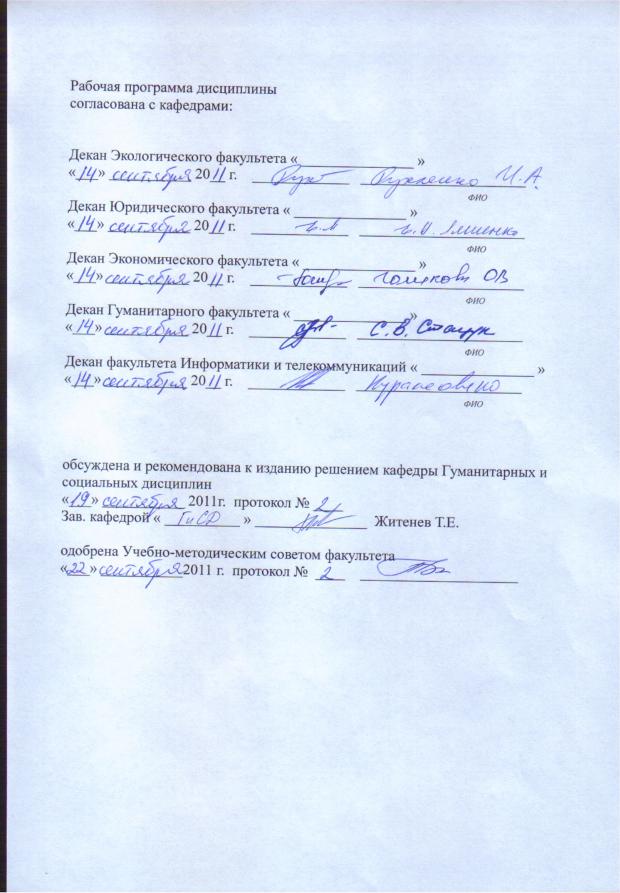 Рабочая программа дисциплины
согласована с кафедрами:
Декан Экологического факультета «_______________ »
«14» сентября 2011 г. И.А.
ФИО
Декан Юридического факультета « _______________ »
«14» сентября 2011 г.
ФИО
Декан Экономического факультета «_______________ »
«14» сентября 2011 г. ОВ
ФИО
Декан Гуманитарного факультета « _______________ »
«14» сентября 2011 г. С.В. Стащук
ФИО
Декан факультета Информатики и телекоммуникаций « _______________ »
«14» сентября 2011 г.
ФИО
обсуждена и рекомендована к изданию решением кафедры Гуманитарных и
социальных дисциплин
«19» сентября 2011г. протокол № 2
Зав. кафедрой « ГиСД » _______________ Житенев Т.Е.
одобрена Учебно-методическим советом факультета
«22» сентября 2011 г. протокол № 2